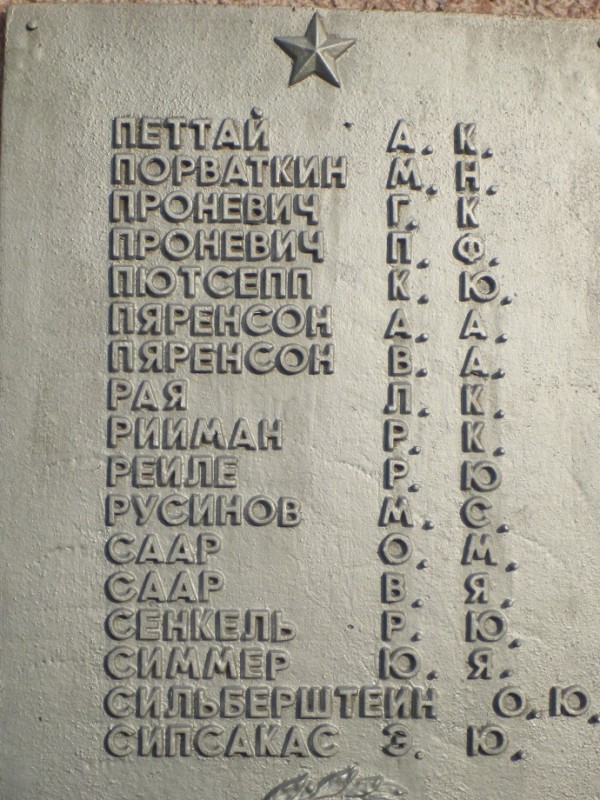 ПЕТТАЙ А. К.
ПОРВАТКИН М. Н.
ПРОНЕВИЧ Г. К
ПРОНЕВИЧ П. Ф.
ПЮТСЕПП К. Ю.
ПЯРЕНСОН А. А.
ПЯРЕНСОН В. А.
РАЯ Л. К.
РИИМАН Р. К.
РЕИЛЕ Р. Ю
РУСИНОВ М. С.
СААР О. М.
СААР В. Я.
СЕНКЕЛЬ Р. Ю.
СИММЕР Ю. Я.
СИЛЬБЕРШТЕИН О. Ю.
СИПСАКАС Э. Ю.